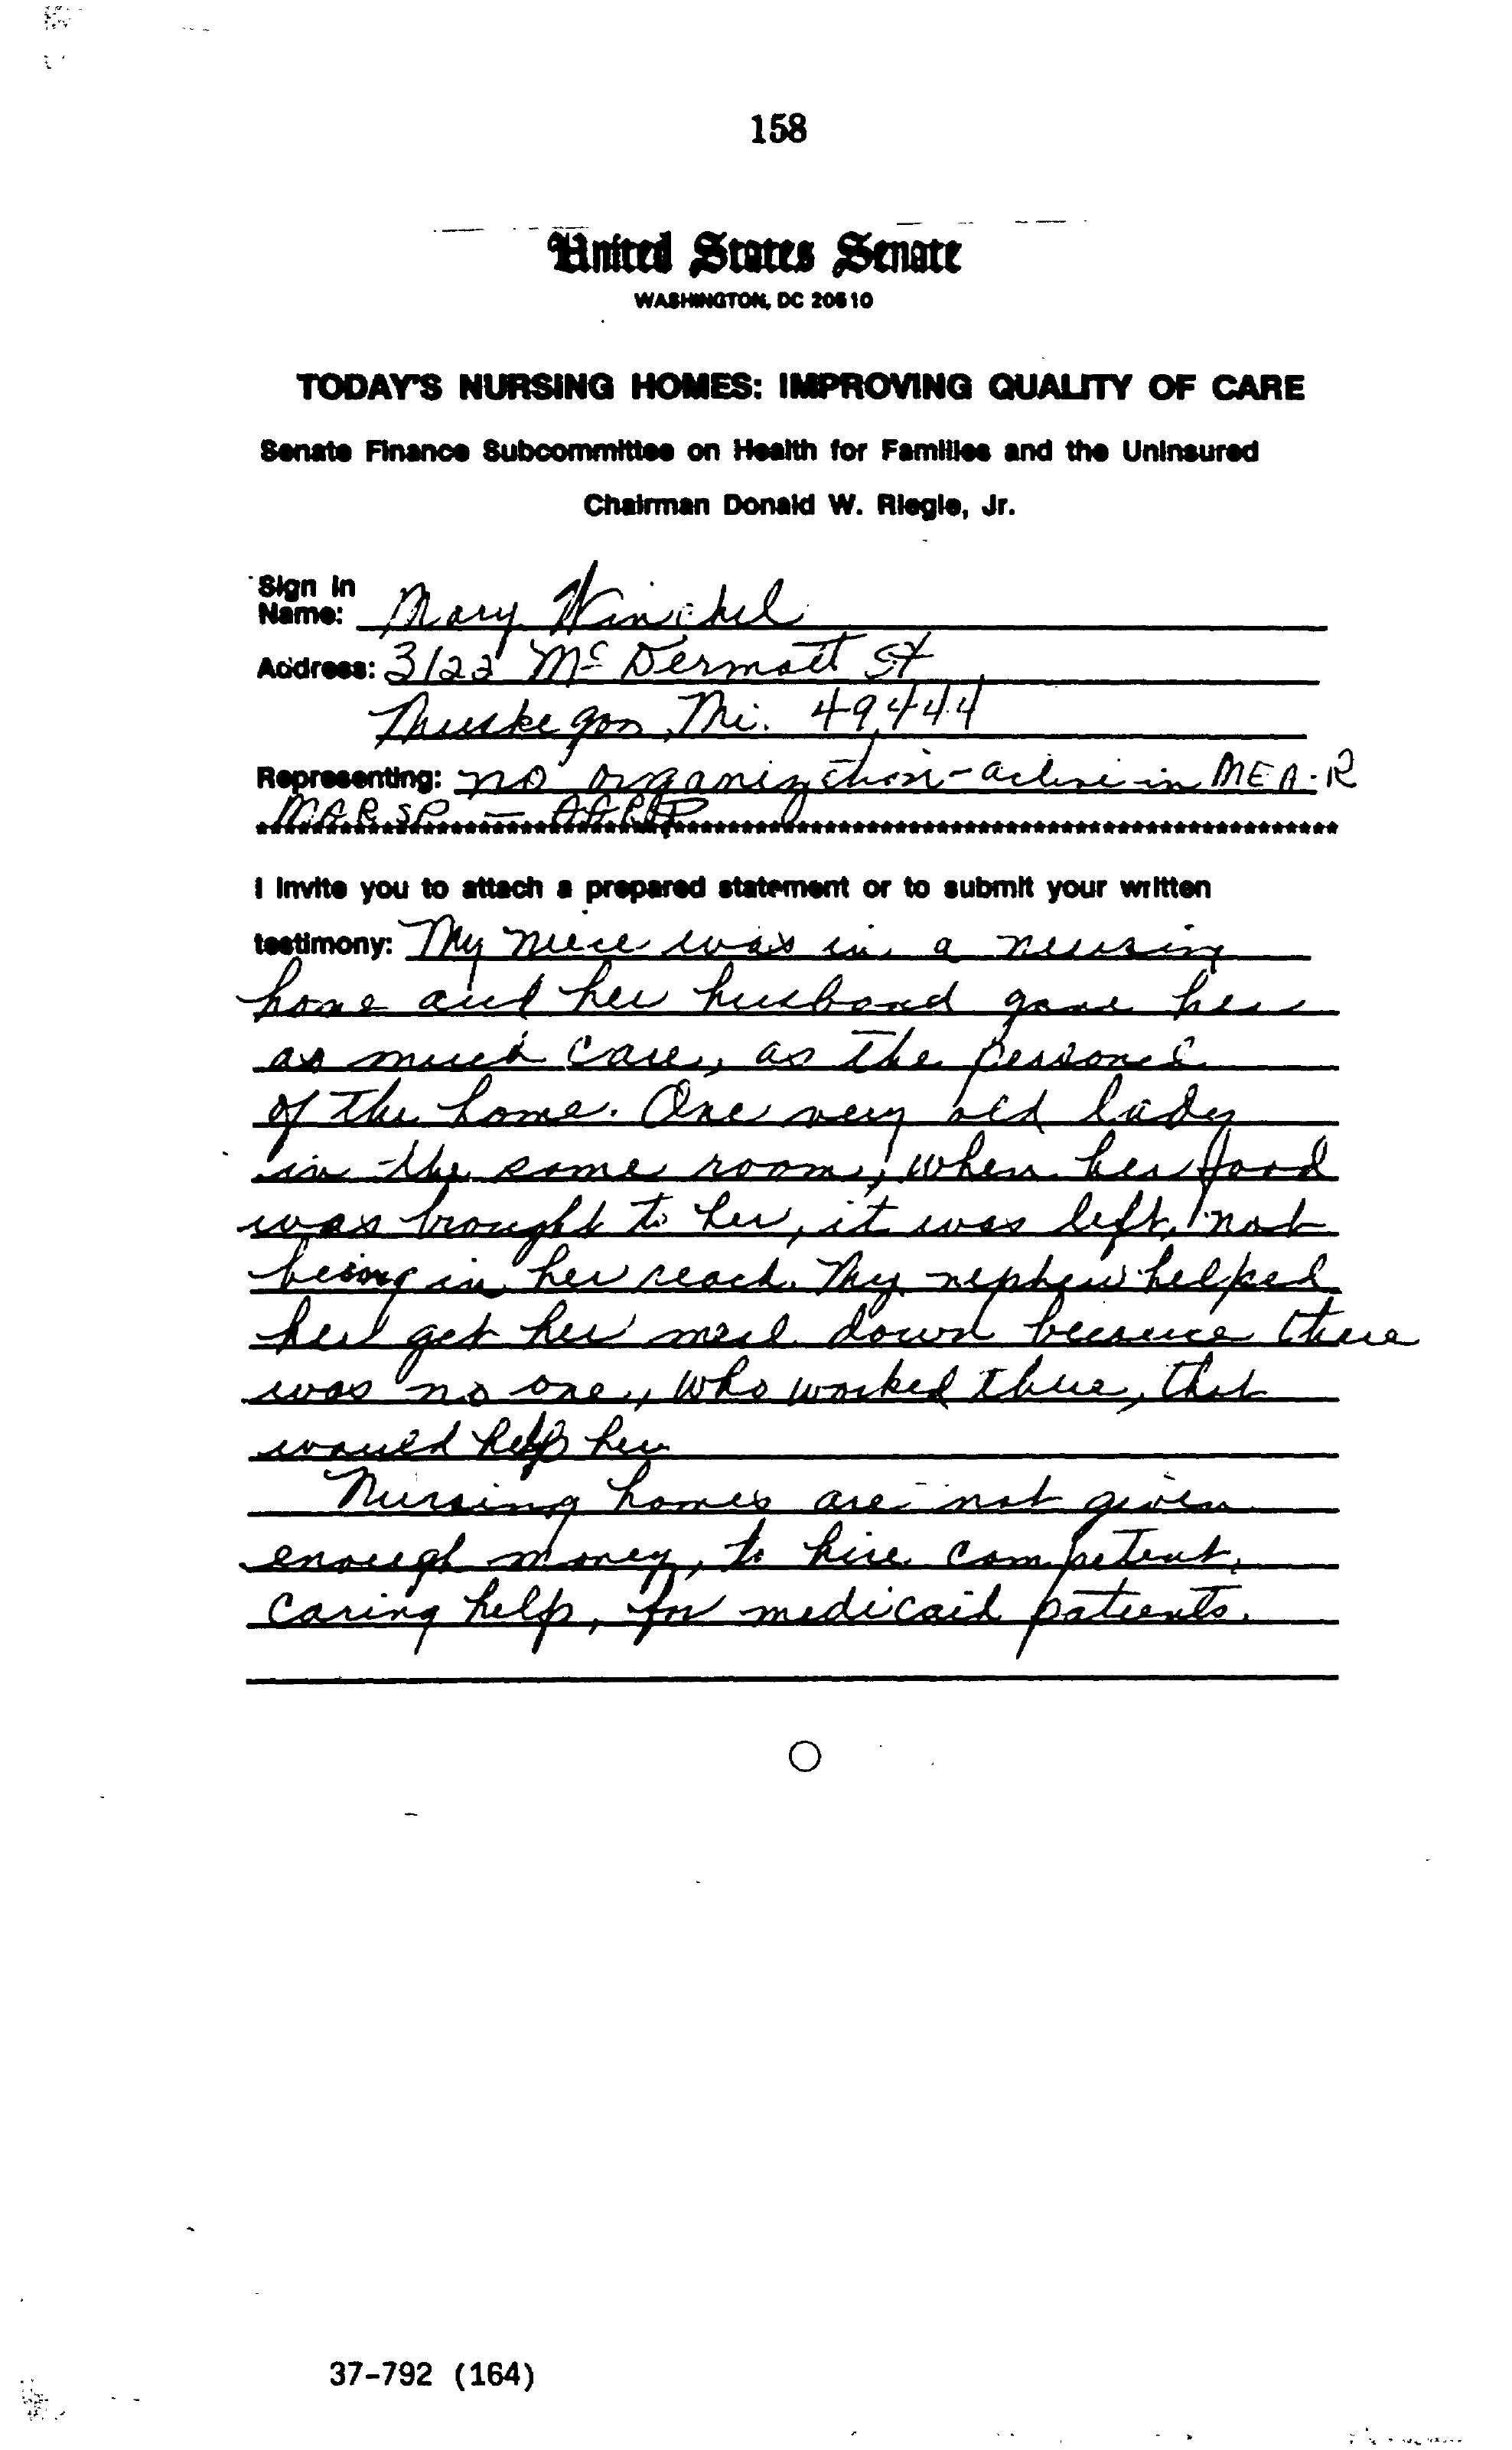 158
United States Senate
WASHINGTON, DC 20510
TODAY'S NURSING HOMES: IMPROVING QUALITY OF CARE
Senate Finance Subcommittee on Health for Families and the Uninsured
Chairman Donald W. Riegle, Jr.
Sign In
Name: Mary Winchel
Address: 3122 McDermott St
Muskegon, Mi. 49444
Representing: no organization - active in MEA-R
MARSP - AARP
I invite you to attach a prepared statement or to submit your written
testimony: My niece was in a nursing
home and her husband gave her
as much care, as the personel
of the home. One very old lady
in the same room, when her food
was brought to her, it was left, not
being in her reach. My nephew helped
her get her meal down because there
was no one, who worked there, that
would help her
Nursing homes are not given
enough money, to hire competent,
caring help, for medicaid patients.
37-792 (164)